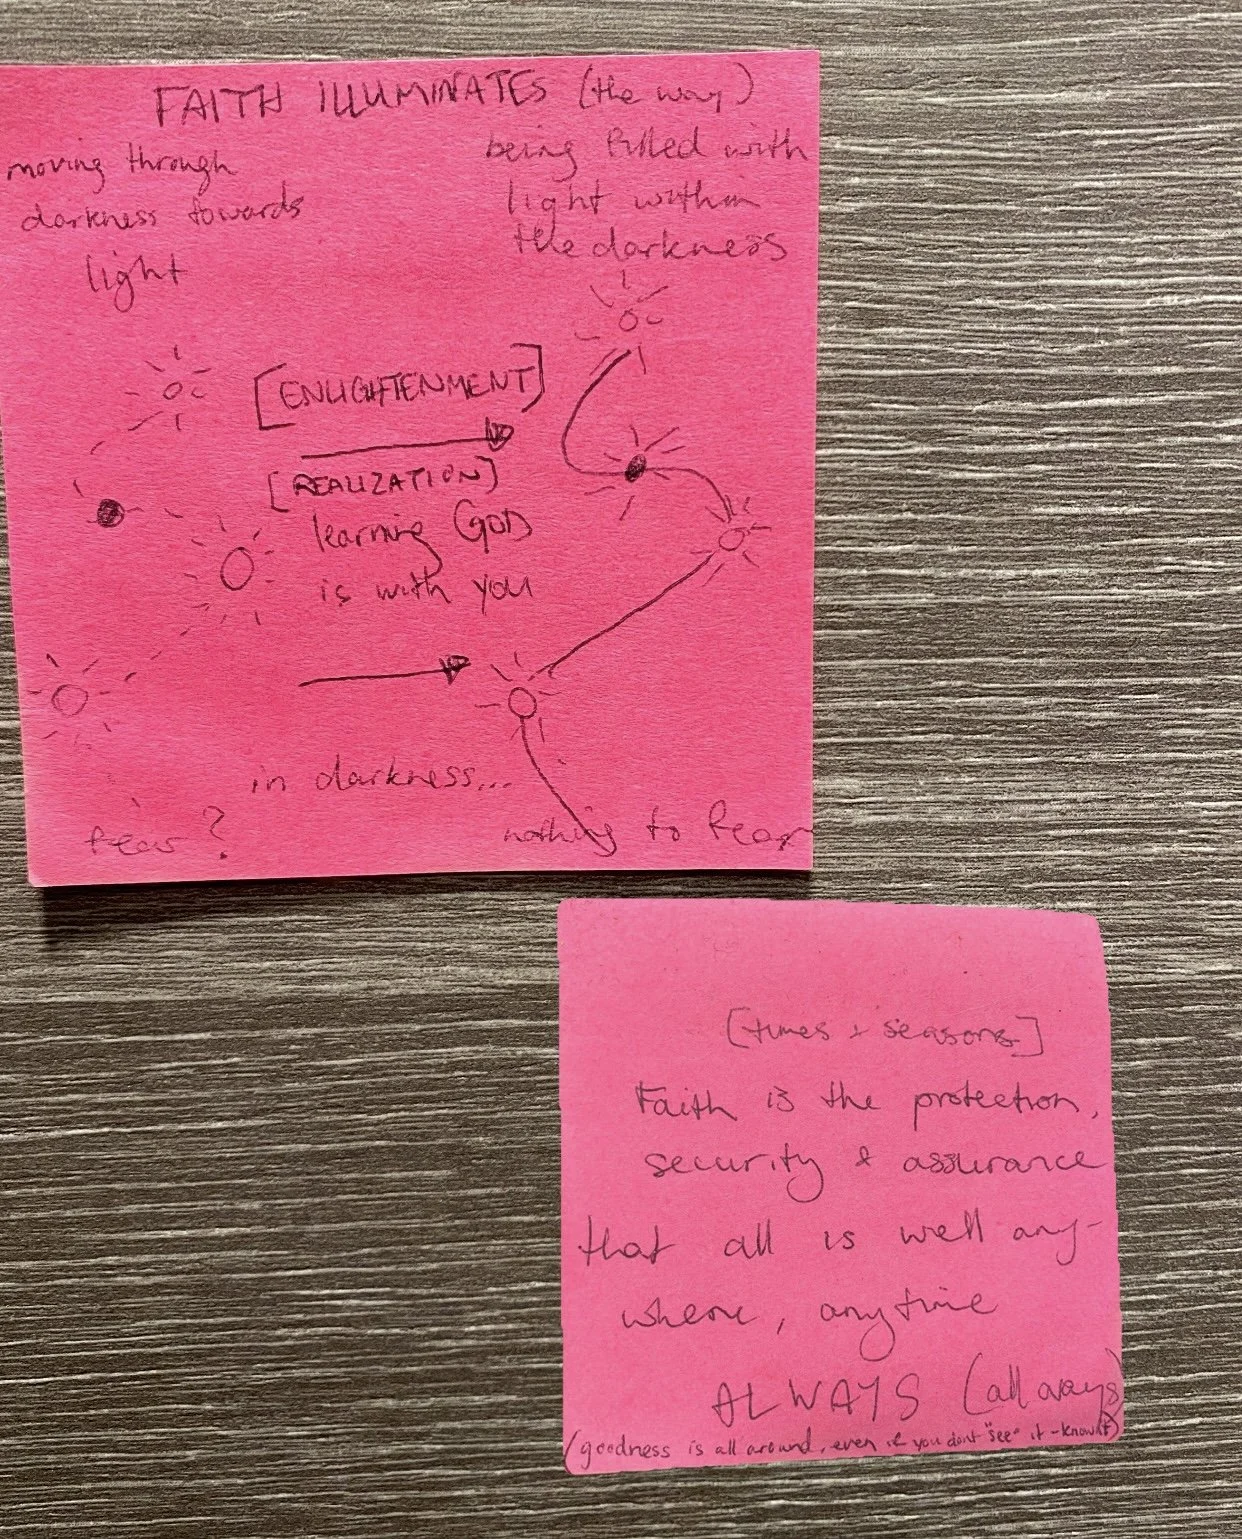 FAITH ILLUMINATES (the way)
moving through
darkness towards
light
being filled with
light within
the darkness
[ENLIGHTENMENT]
[REALIZATION]
learning GOD
is with you
in darkness...
fear?
nothing to fear
[times + seasons]
Faith is the protection,
security & assurance
that all is well any-
where, anytime
ALWAYS (all ways)
(goodness is all around, even if you dont "see" it - know it)